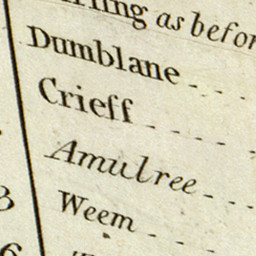 as befor
Dumblane - - -
Crieff - - - - -
Amulree - - -
Weem - - -